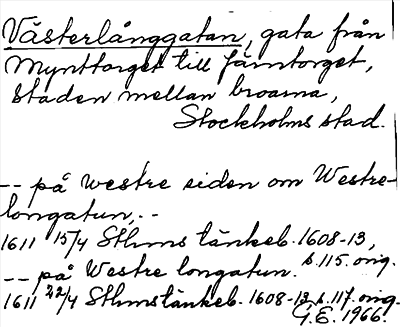 Västerlånggatan, gata från
Mynttorget till Järntorget,
Staden mellan broarna,
Stockholms stad.
-- på westre siden om Westre-
longatun, --
1611 15/4 Sthms tänkeb. 1608-13,
s. 115. orig.
-- på Westre longatun.
1611 22/4 Sthmstänkeb. 1608-13, s. 117. orig.
G.E. 1966.